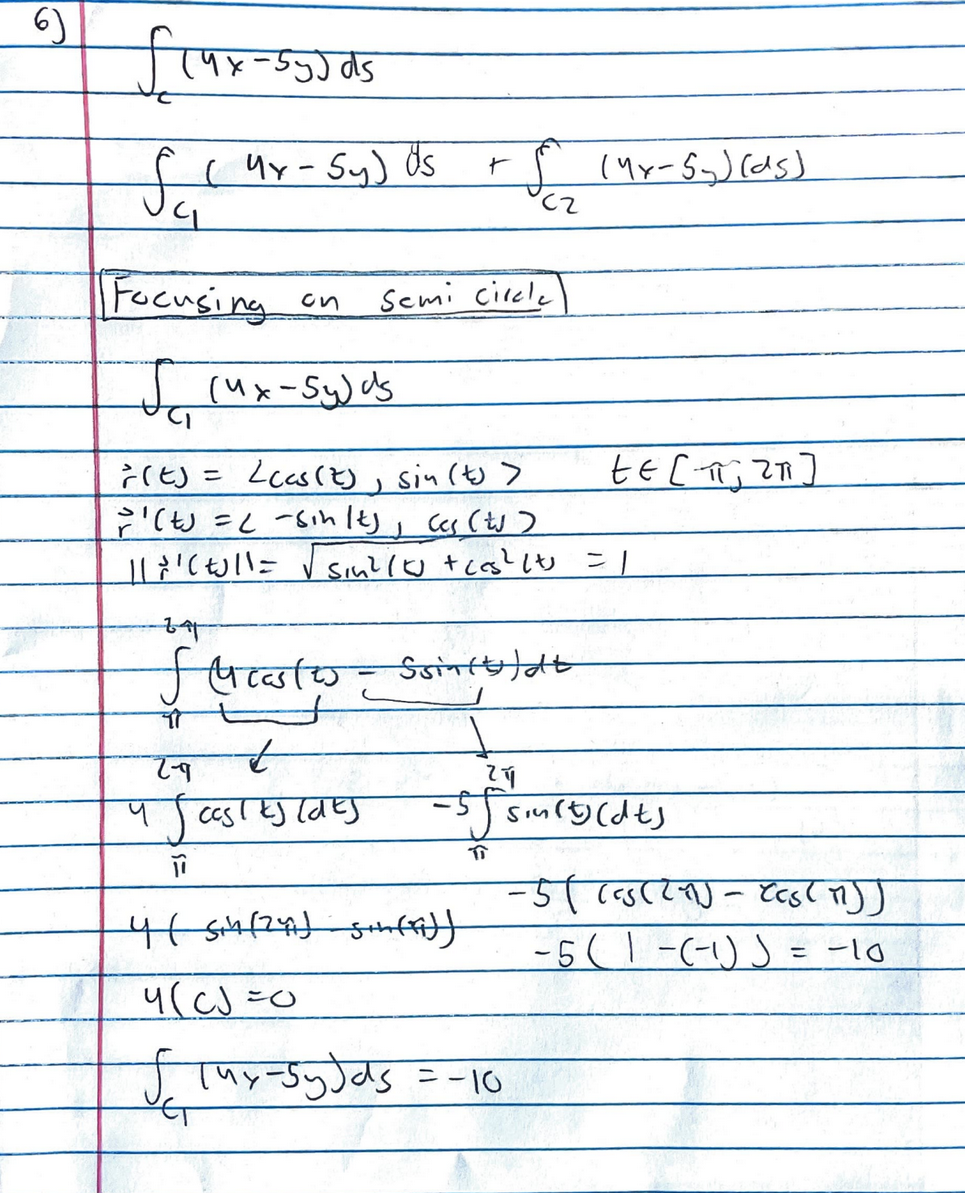 6)
∫_C (4x-5y) ds
∫_C1 (4x-5y) ds + ∫_C2 (4x-5y)(ds)
Focusing on semi circle
∫_C1 (4x-5y) ds
r⃗(t) = <cos(t), sin(t)> t∈[π, 2π]
r⃗'(t) = <-sin(t), cos(t)>
||r⃗'(t)|| = √(sin²(t) + cos²(t)) = 1
∫_π^2π (4cos(t) - 5sin(t)) dt
4 ∫_π^2π cos(t)(dt) -5 ∫_π^2π sin(t)(dt)
-5( cos(2π) - cos(π))
4( sin(2π) - sin(π))
-5( 1 -(-1) ) = -10
4(0) = 0
∫_C1 (4x-5y) ds = -10